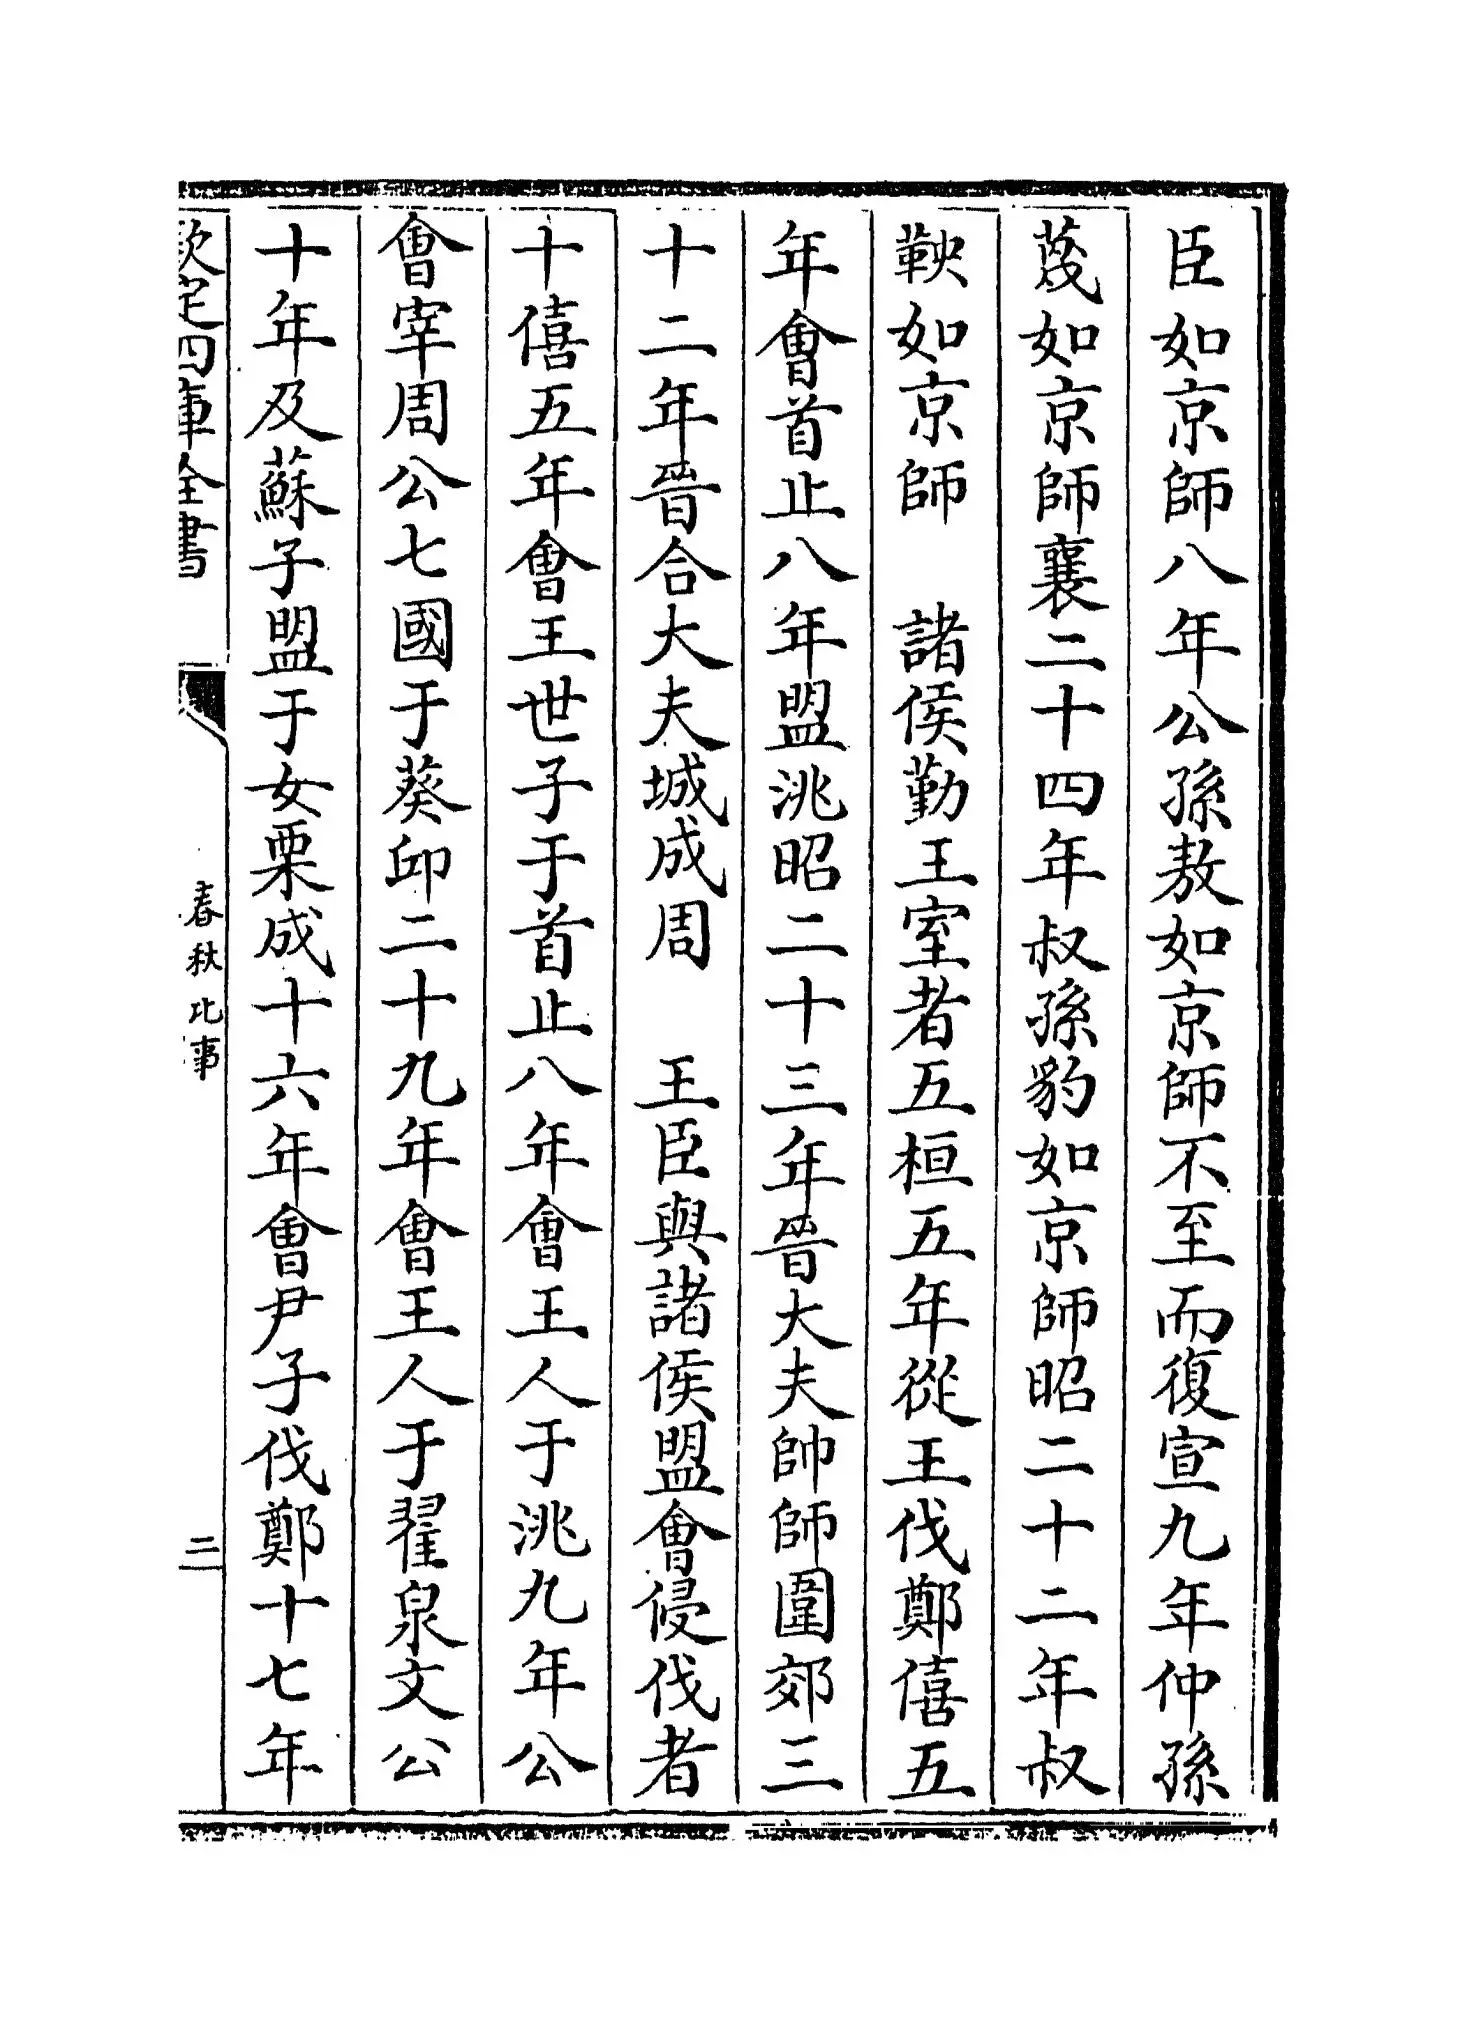 臣如京師八年公孫敖如京師不至而復宣九年仲孫
蔑如京師襄二十四年叔孫豹如京師昭二十二年叔
鞅如京師　諸侯勤王室者五桓五年從王伐鄭僖五
年會首止八年盟洮昭二十三年晉大夫帥師圍郊三
十二年晉合大夫城成周　王臣與諸侯盟會侵伐者
十僖五年會王世子于首止八年會王人于洮九年公
會宰周公七國于葵邱二十九年會王人于翟泉文公
十年及蘇子盟于女栗成十六年會尹子伐鄭十七年
欽定四庫全書
春秋比事
三